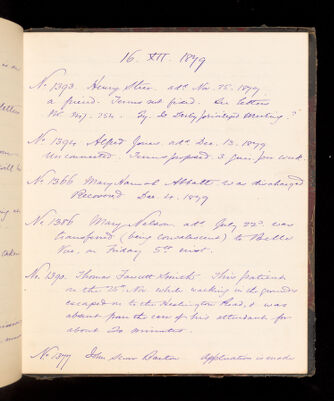 16. XII. 1879
No 1393. Henry Steer. adm. Nov. 25. 1879.
a friend. Terms not fixed. See letters
No 1394. Alfred Jones. adm. Dec. 13. 1879
Unconnected. Terms proposed. 3 guas. per week.
No 1366 Mary Hannah Abbatt. was discharged
Recovered Dec. 10. 1879
No 1386 Mary Nelson. adm. July 22d. was
transferred (being convalescent) to Belle
Vue. on Friday 5th inst.
No. 1390. Thomas Fawcett Smith. This patient
on the 25th Nov. while walking in the grounds
escaped on to the Heslington Road, & was
absent from the care of his attendant for
about 20 minutes.
No 1377 John Barton Application is made